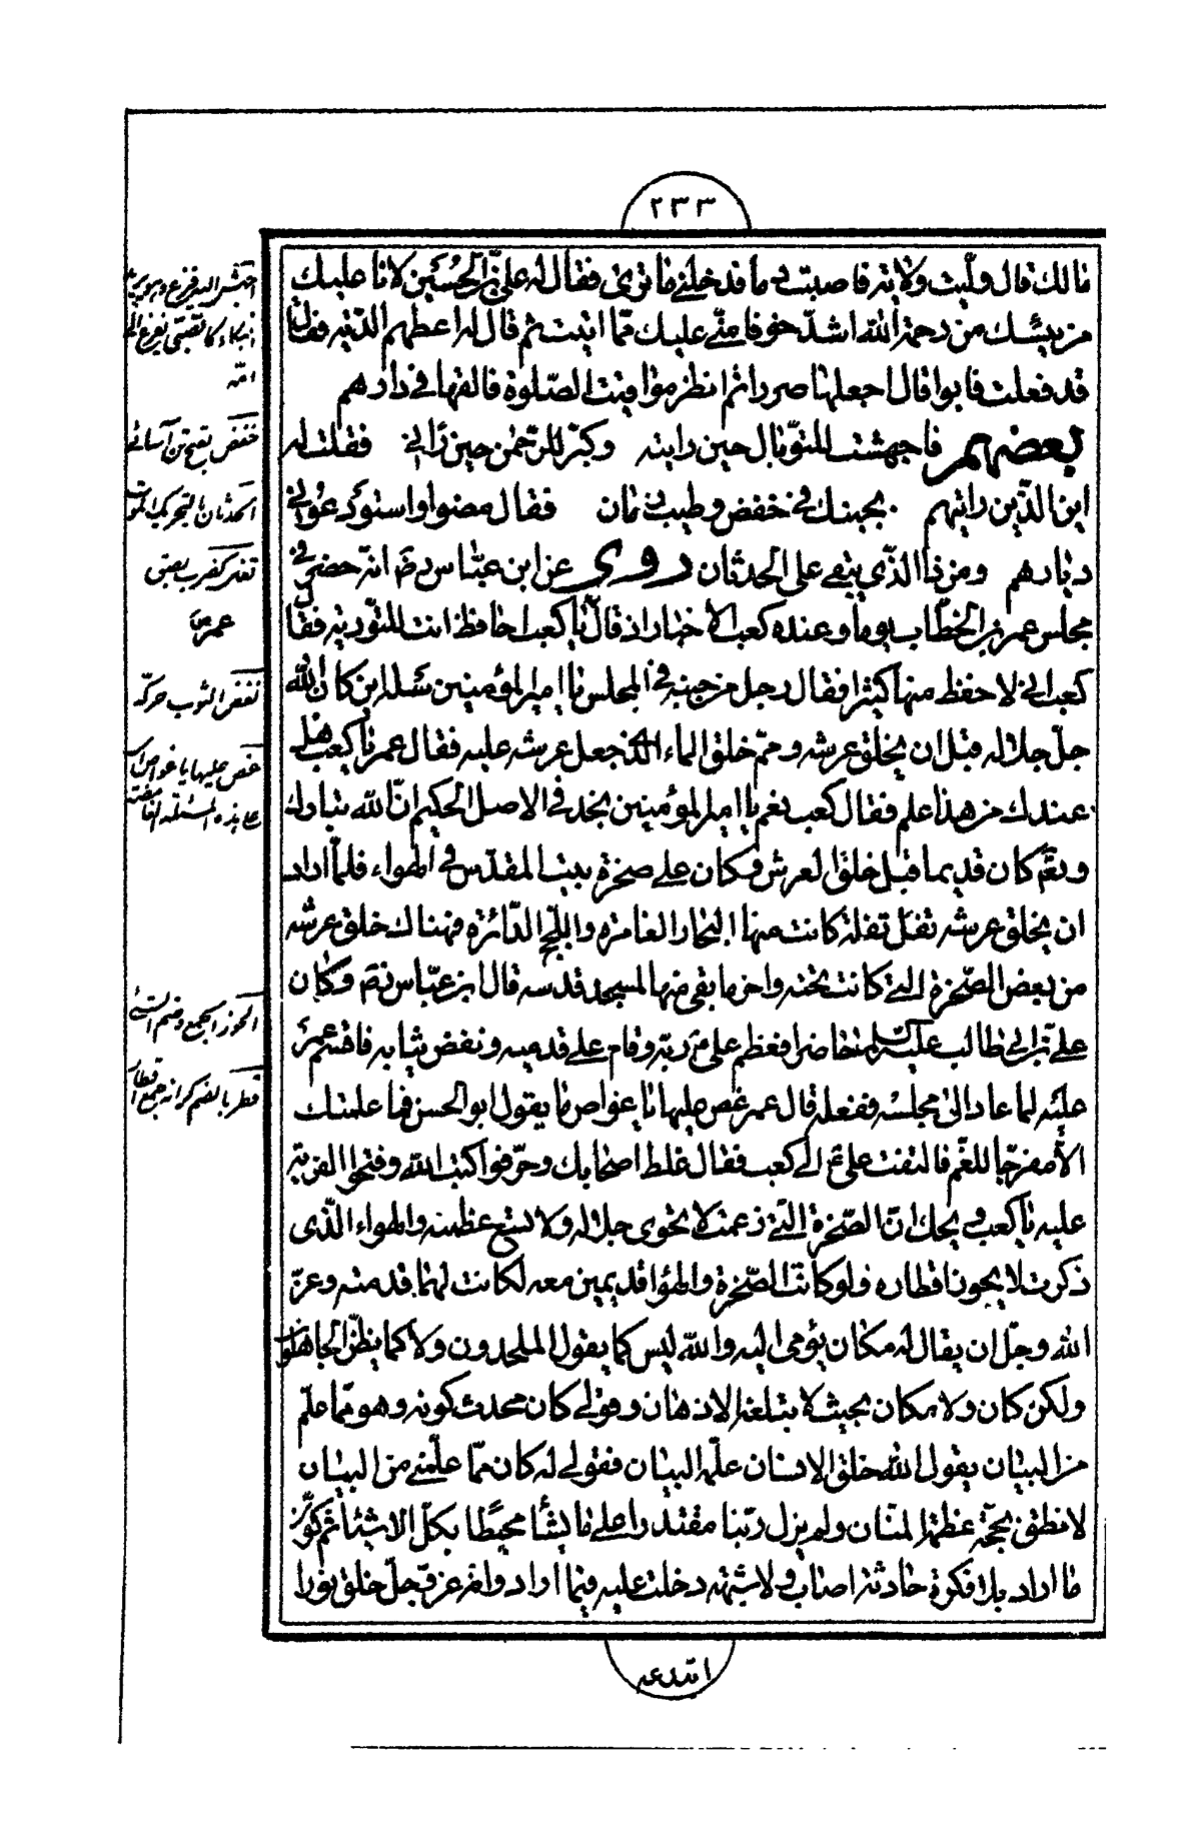 ٢٣٣
مالك قال وليت ولاية فاصبت دما قد خلني ما ترى فقال له علي بن الحسين لانا عليك
من يئسك من رحمة الله اشد خوفا مني عليك مما اتيت ثم قال له اعطهم الدية فقال
قد فعلت فابوا قال اجعلها صررا ثم انظر مواقيت الصلوة فالقها في دارهم
بعضهم فاجهشت للتوبال حين رايته وكبر للرحمن حين راني فقلت له
اين الذين رايتهم بجنبك في خفض وطيب زمان فقال مضوا واستودعوني
ديارهم ومن ذا الذي يبقى على الحدثان روى عن ابن عباس رض انه حضر في
مجلس عمر بن الخطاب يوما وعنده كعب الاحبار اذ قال يا كعب احافظ انت للتورية فقال
كعب اني لاحفظ منها كثيرا فقال رجل من جنبه في المجلس يا امير المؤمنين سله اين كان الله
جل جلاله قبل ان يخلق عرشه ومم خلق الماء الذي جعل عرشه عليه فقال عمر يا كعب هل
عندك من هذا علم فقال كعب نعم يا امير المؤمنين نجد في الاصل الحكيم ان الله تبارك
وتعم كان قديما قبل خلق العرش وكان على صخرة بيت المقدس في الهواء فلما اراد
ان يخلق عرشه تفل تفلة كانت منها البحار الغامرة واللجج الدائرة فهناك خلق عرشه
من بعض الصخرة التي كانت تحته واخر ما بقى منها لمسجد قدسه قال ابن عباس رض وكان
علي بن ابي طالب عليه السلم حاضرا فعظم علي ع ربه وقام على قدميه ونفض ثيابه فاقسم عمر
عليه لما عاد الى مجلسه ففعل قال عمر غص عليها يا غواص ما يقول ابو الحسن فما علمتك
الا مفرجا للغم فالتفت علي ع الى كعب فقال غلط اصحابك وحرفوا كتب الله وفتحوا الفرية
عليه يا كعب ويحك ان الصخرة التي زعمت لا تحوى جلاله ولا تسع عظمته والهواء الذي
ذكرت لا يجوز اقطاره ولو كانت الصخرة والهؤا قديمين معه لكانت لهما قدمته وعز
الله وجل ان يقال له مكان يؤمى اليه والله ليس كما يقول الملحدون ولا كما يظن الجاهلون
ولكن كان ولا مكان بحيث لا تبلغه الاذهان وقولي كان محدث كونه وهو مما علم
من البيان يقول الله خلق الانسان علمه البيان فقولي له كان مما علمني من البيان
لانطق بحجة عظمة المنان ولم يزل ربنا مقتدرا على ما يشأ محيطا بكل الاشيأ ثم كون
ما اراد بلا فكرة حادثة اصاب ولا شبهة دخلت عليه فيما اراد وانه عز وجل خلق نورا
ابتدعه
اجتهش اليه فزع وهو يريد
البكاء كالصبي يفزع الى
امه
خفض بفتح تن آسانى
الحدثان بالتحريك الموت
عمر
نفض الثوب حركه
غص عليها يا غواص
الحوز الجمع وضم الشئ
قطر بالضم كرانه جمع اقطار